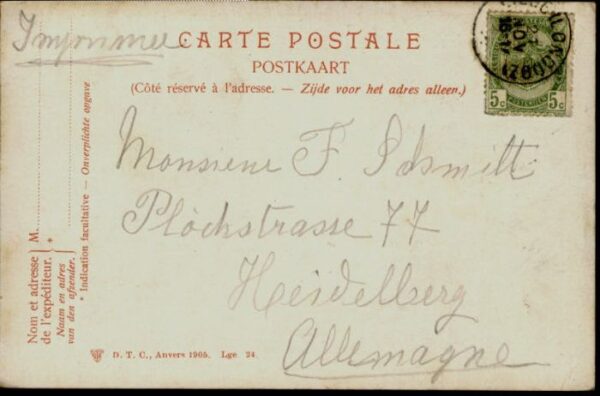 Imprimee
CARTE POSTALE
POSTKAART
(Côté réservé à l'adresse. — Zijde voor het adres alleen.)
NOV
5c 5c
Monsieur F. Schmitt
Plöckstrasse 77
Heidelberg
Allemagne
Nom et adresse
de l'expéditeur.
M.
*
Naam en adres
van den afzender.
* Indication facultative — Onverplichte opgave
D. T. C., Anvers 1905. Lge 24.